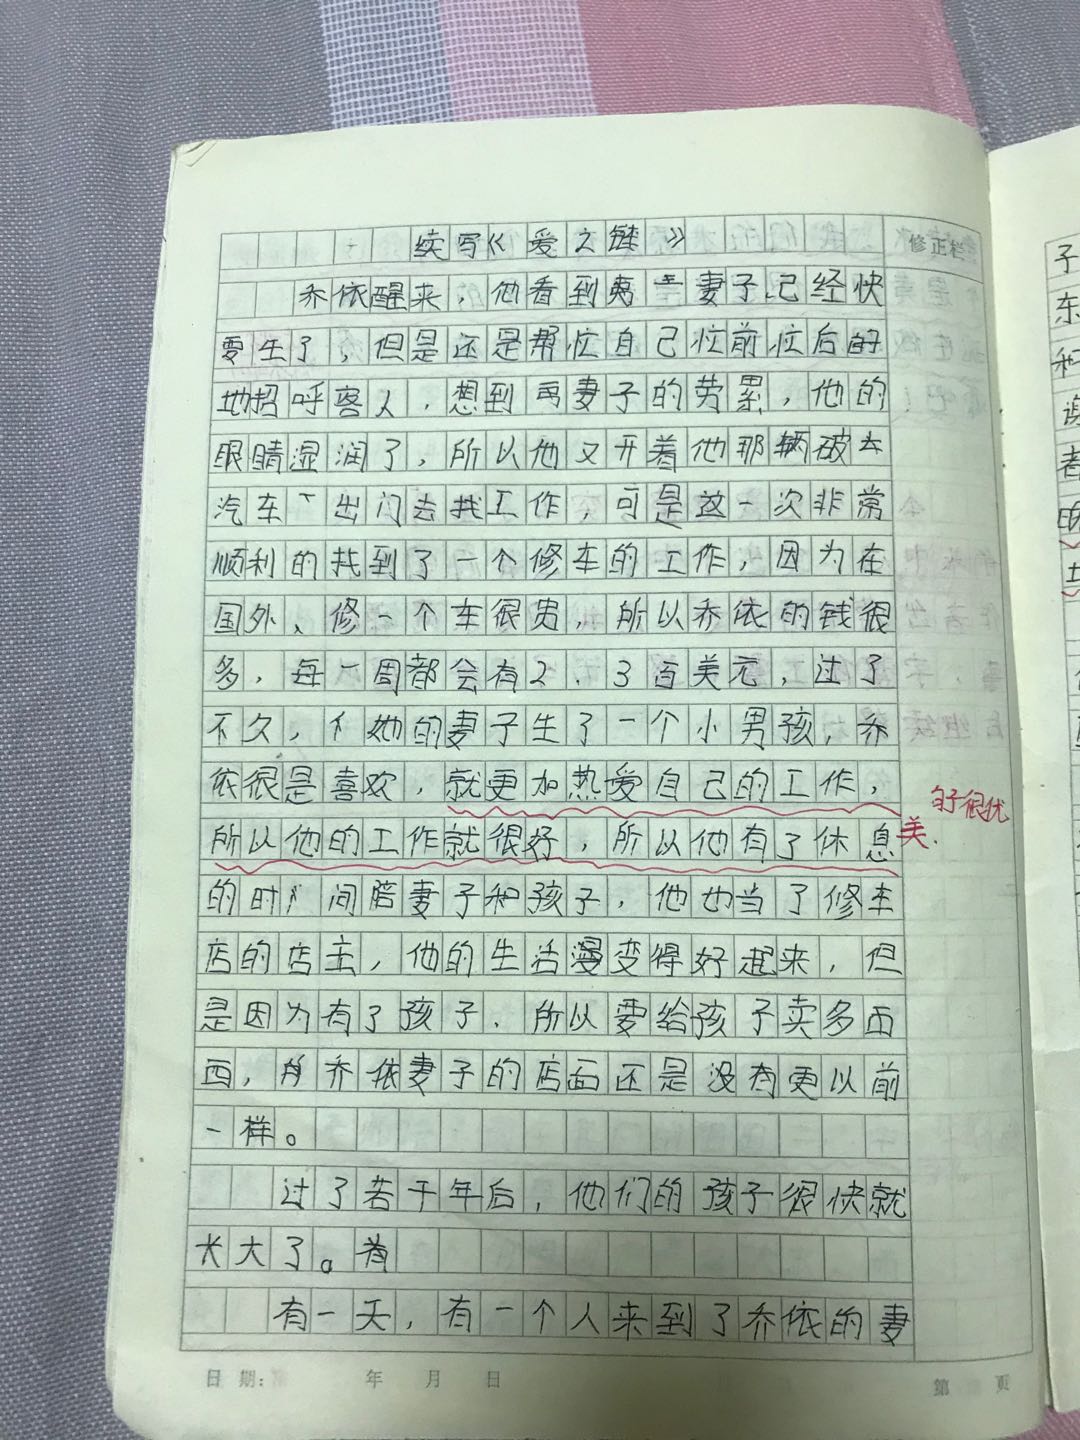 续写《爱之链》
修正栏
乔依醒来，他看到妻子已经快
要生了，但是还是帮忙自己忙前忙后的
地招呼客人，想到妻子的劳累，他的
眼睛湿润了，所以他又开着他那辆破
汽车出门去找工作，可是这一次非常
顺利的找到了一个修车的工作，因为在
国外、修一个车很贵，所以乔依的钱很
多，每一周都会有2、3百美元，过了
不久，她的妻子生了一个小男孩，乔
依很是喜欢，就更加热爱自己的工作，
句子很优
美.
所以他的工作就很好，所以他有了休息
的时间陪妻子和孩子，他也当了修车
店的店主，他的生活漫变得好起来，但
是因为有了孩子、所以要给孩子卖多西
西，乔依妻子的店面还是没有更以前
一样。
过了若干年后，他们的孩子很快就
长大了。
有一天，有一个人来到了乔依的妻
日期： 年 月 日
第 页
子
东
和